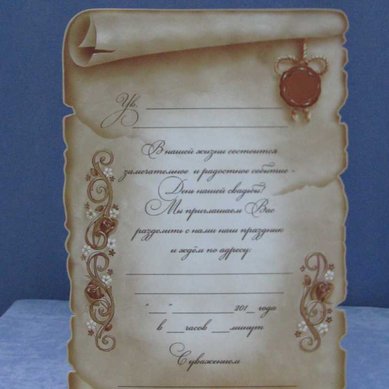 Ув. ____________
____________
В нашей жизни состоится
замечательное и радостное событие -
День нашей свадьбы!
Мы приглашаем Вас
разделить с нами наш праздник
и ждём по адресу:
____________
____________
"__" ________ 201_ года
в ___часов ___минут
С уважением
____________